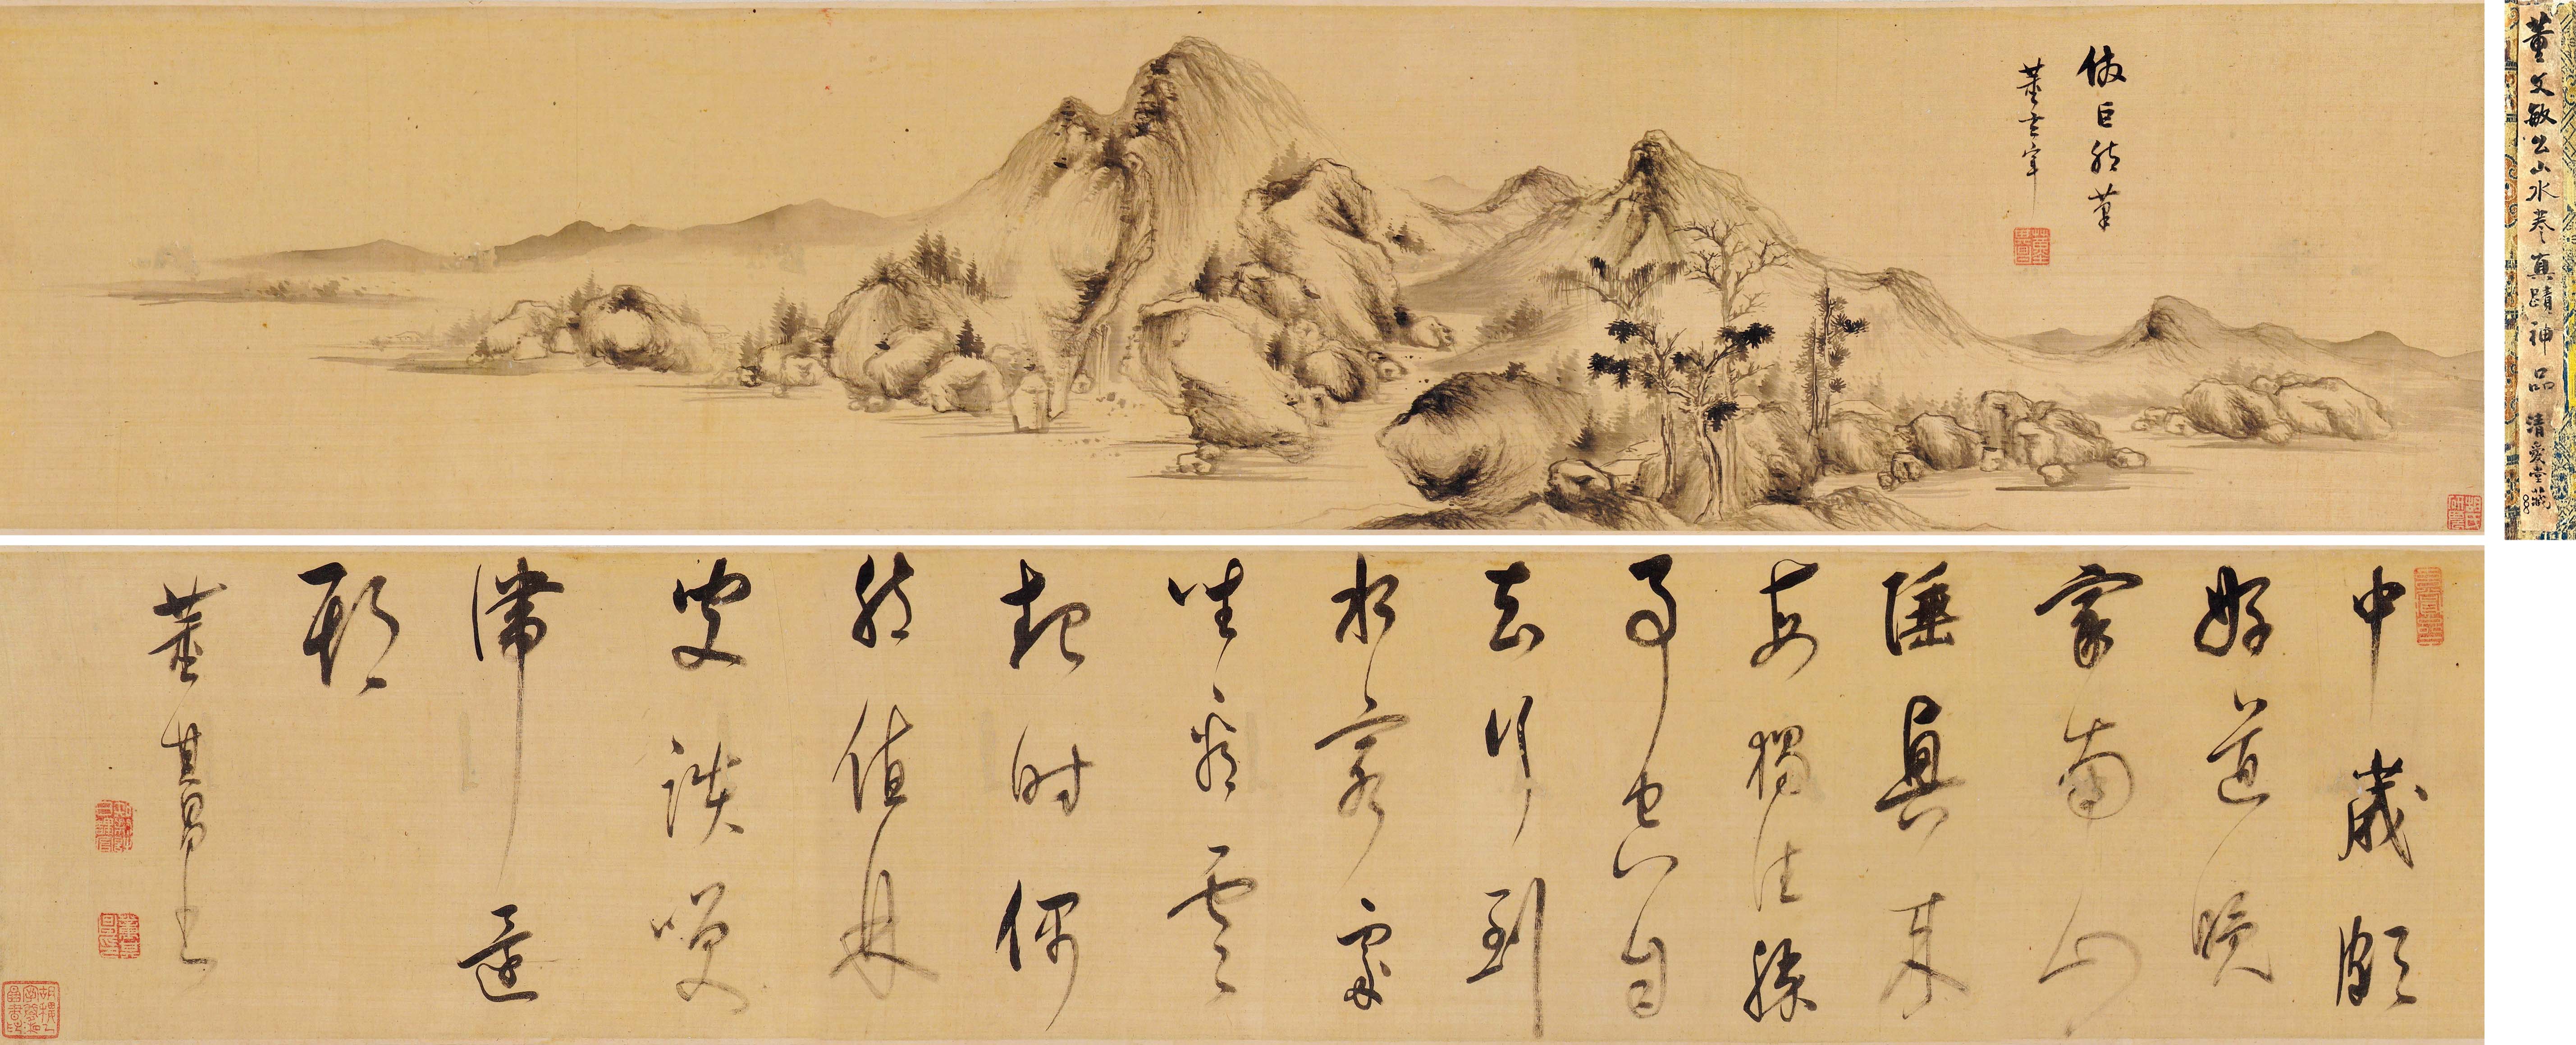 董文敏公山水卷真蹟神品 清愛堂藏
倣巨然筆
董玄宰
中歲頗
好道晚
家南山
陲興來
每獨往勝
事空自
知行到
水窮處
坐看雲
起時偶
然值林
叟談笑
滯還
期
董其昌書
知制誥日講官
董其昌印